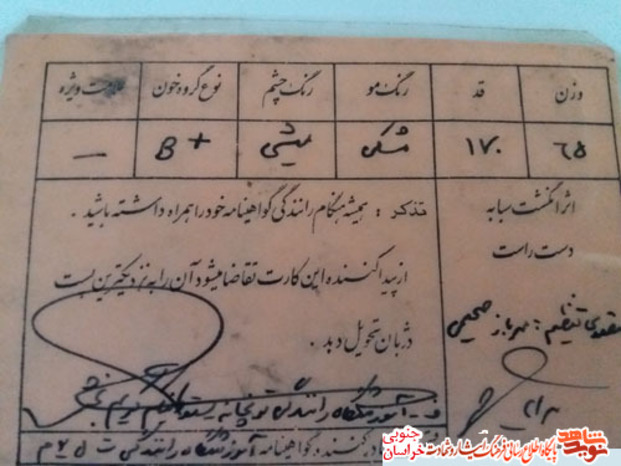 وزن	قد	رنگ مو	رنگ چشم	نوع گروه خون	علامت ویژه
٦٥	١٧٠	مشکی	میشی	B+	—
اثر انگشت سبابه
دست راست
تذکر : همیشه هنگام رانندگی گواهینامه خود را همراه داشته باشید .
از پیدا کننده این کارت تقاضا میشود آن را به نزدیکترین پست
دژبان تحویل دهد .
متصدی تنظیم : سرباز
آموزشگاه رانندگی توپخانه
کننده گواهینامه آموزشگاه رانندگی
نوید شاهد
پایگاه اطلاع رسانی فرهنگ ایثار و شهادت
خراسان جنوبی